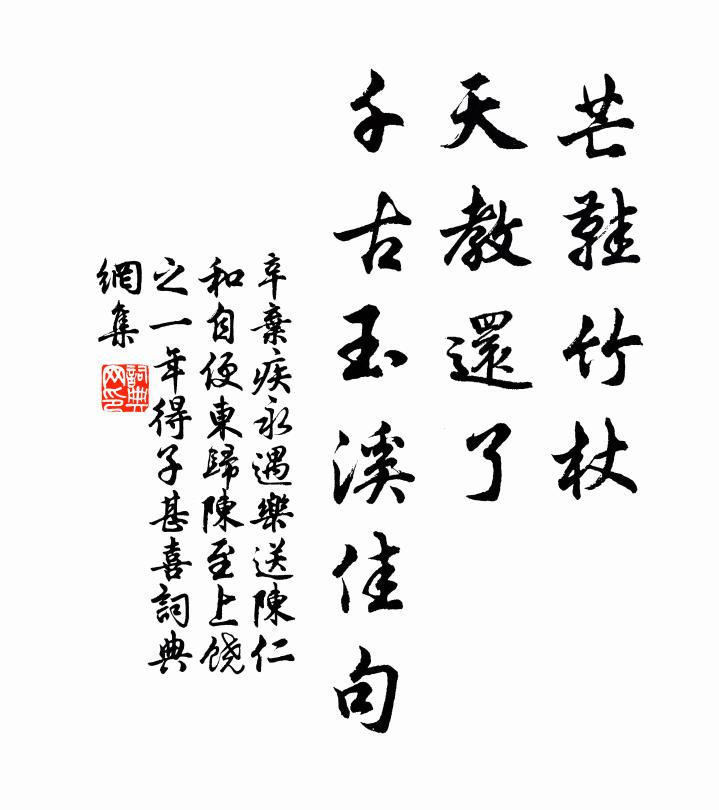 芒鞋竹杖
天教還了
千古玉溪佳句
辛棄疾永遇樂送陳仁
和自便東歸陳至上饒
之一年得子甚喜詞典
網集
詞典
网印